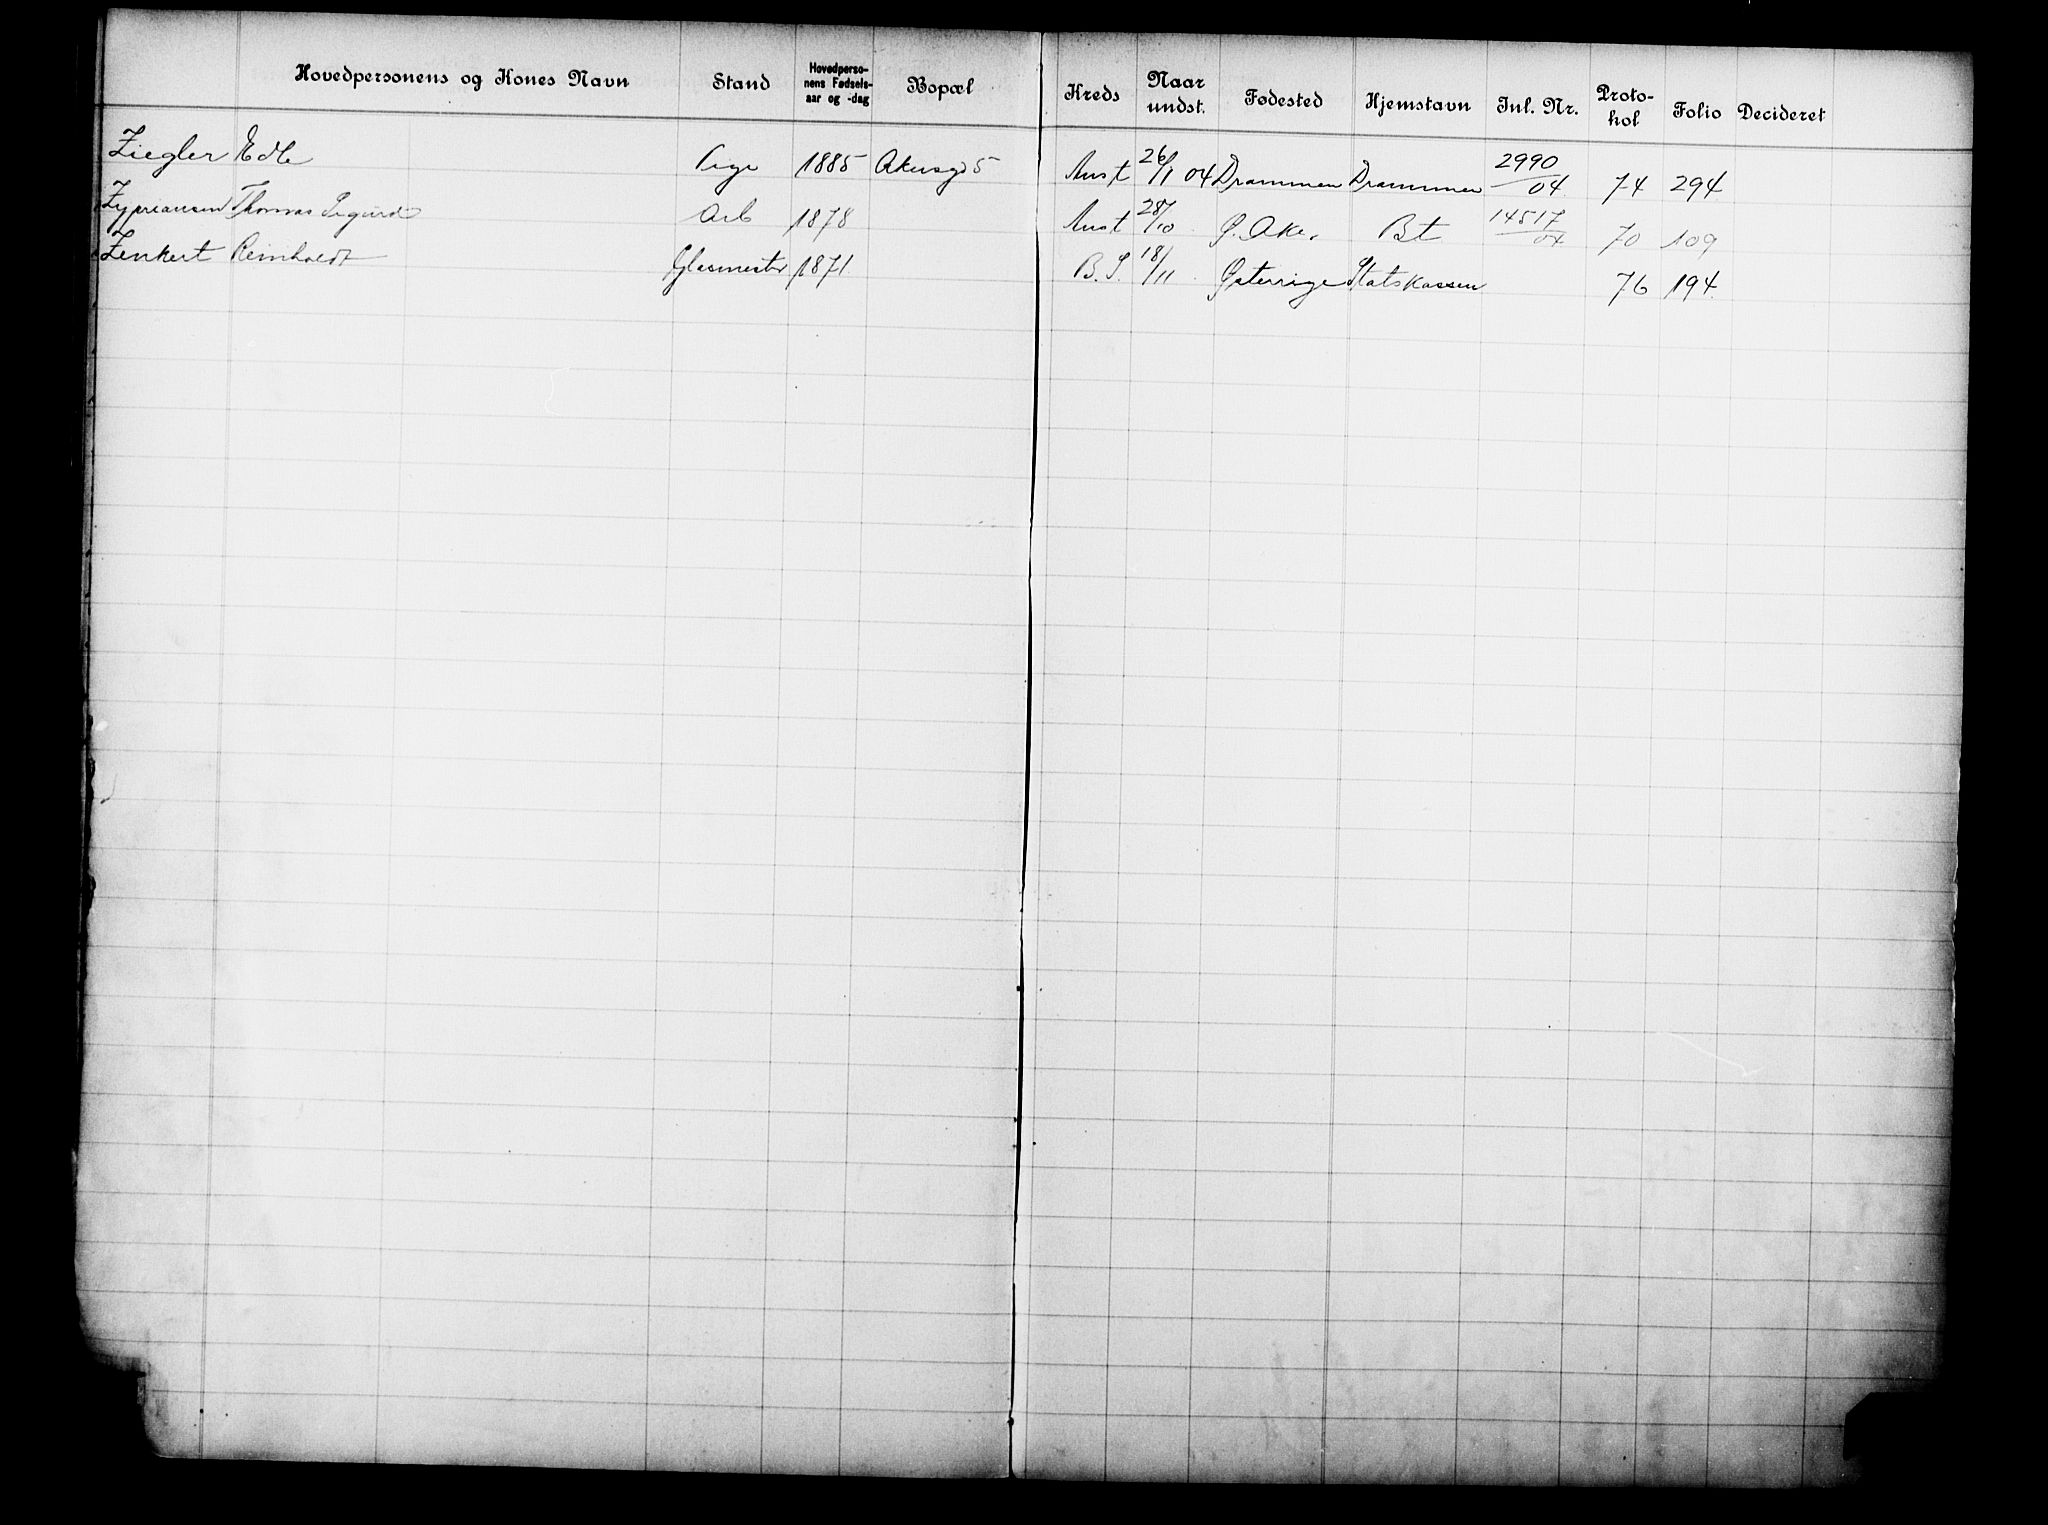 Hovedpersonens og Kones Navn Stand Hovedpersonens Fødselsaar og -dag Bopæl Kreds Naar undst. Fødested Hjemstavn Inl. Nr. Protokol Folio Decideret
Ziegler Edle Pige 1885 Akersgd 5 Anst 26/1 04 Drammen Drammen 2990/04 74 294
Zyprianssen Thomas Sigurd Arb 1878 Anst 28/10 Ø. Aker Bt 14517/04 70 109
Zenkert Reinholdt Glasmester 1871 B. S. 18/11 Østerrige Statskassen 76 194